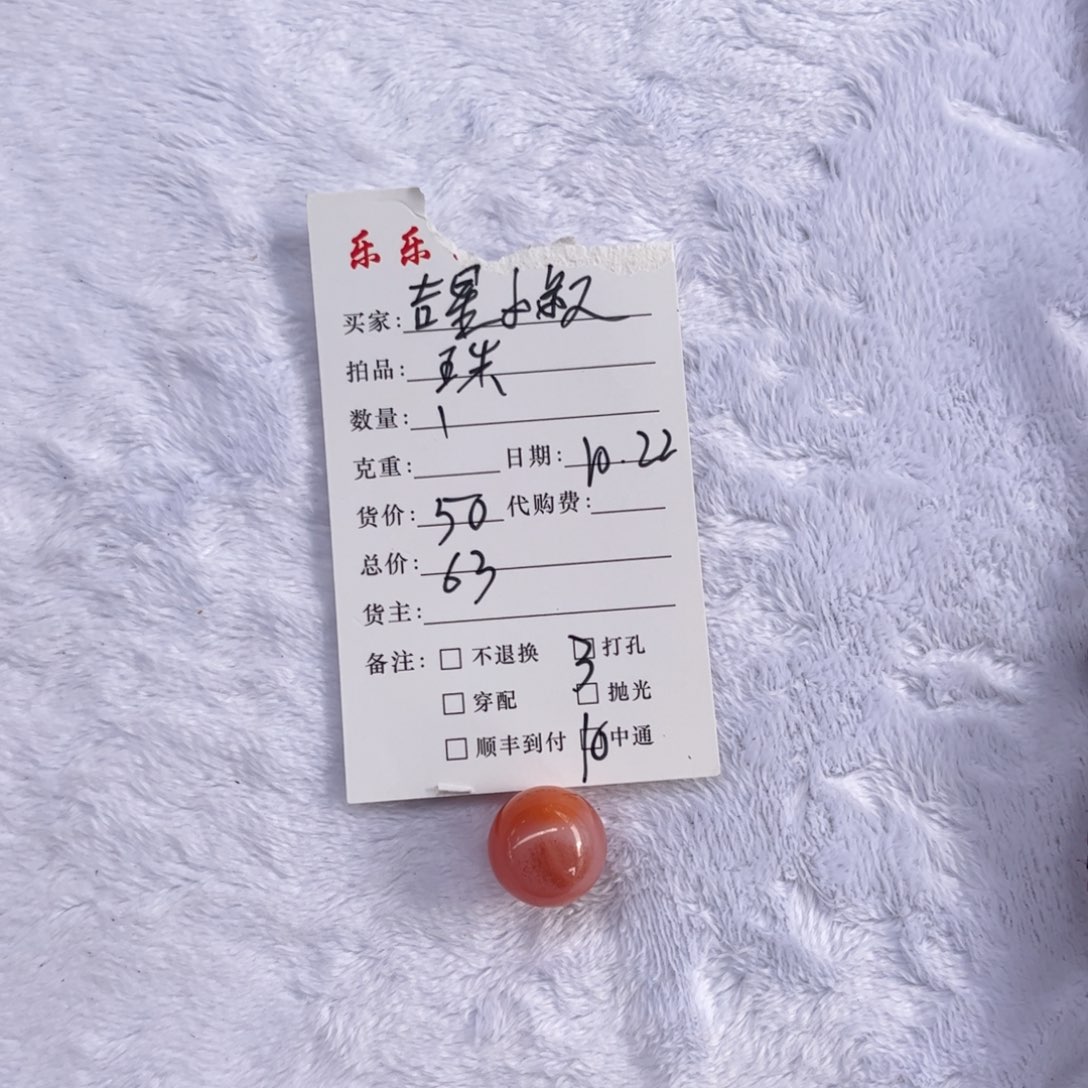 乐乐
买家：吉星小叔
拍品：珠
数量：1
克重： 日期：10.22
货价：50 代购费：
总价：63
货主：
备注：□ 不退换 □ 打孔 3
□ 穿配 □ 抛光
□ 顺丰到付 □ 中通 10